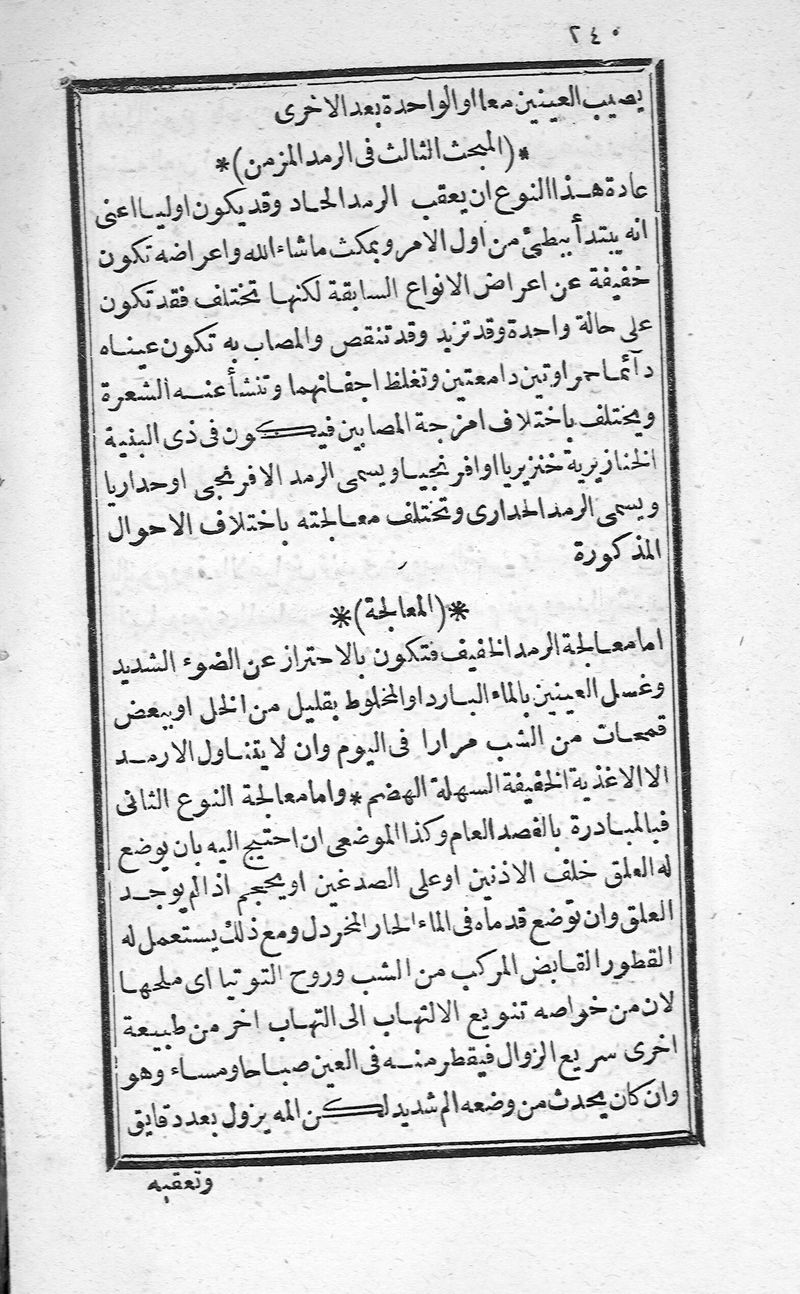 ٢٤٠
يصيب العينين معا او الواحدة بعد الاخرى
*(المبحث الثالث فى الرمد المزمن)*
عادة هذا النوع ان يعقب الرمد الحاد وقد يكون اوليا اعنى
انه يبتدأ ببطئ من اول الامر ويمكث ماشاء الله واعراضه تكون
خفيفة عن اعراض الانواع السابقة لكنها تختلف فقد تكون
على حالة واحدة وقد تزيد وقد تنقص والمصاب به تكون عيناه
دآئما حمراوتين دامعتين وتغلظ اجفانهما وتنشأ عنه الشعرة
ويختلف باختلاف امزجة المصابين فيكون فى ذى البنية
الخنازيرية خنزيريا او افرنجيا ويسمى الرمد الافرنجى او حداريا
ويسمى الرمد الحدارى وتختلف معالجته باختلاف الاحوال
المذكورة
*(المعالجة)*
اما معالجة الرمد الخفيف فتكون بالاحتراز عن الضوء الشديد
وغسل العينين بالماء البارد او المخلوط بقليل من الخل او ببعض
قمحات من الشب مرارا فى اليوم وان لا يتناول الارمد
الا الاغذية الخفيفة السهلة الهضم * واما معالجة النوع الثانى
فبالمبادرة بالفصد العام وكذا الموضعى ان احتيج اليه بان يوضع
له العلق خلف الاذنين او على الصدغين او يحجم اذا لم يوجد
العلق وان توضع قدماه فى الماء الحار المخردل ومع ذلك يستعمل له
القطور القابض المركب من الشب وروح التوتيا اى ملحها
لان من خواصه تنويع الالتهاب الى التهاب اخر من طبيعة
اخرى سريع الزوال فيقطر منه فى العين صباحا ومساء وهو
وان كان يحدث من وضعه الم شديد لكن المه يزول بعد دقايق
وتعقبه